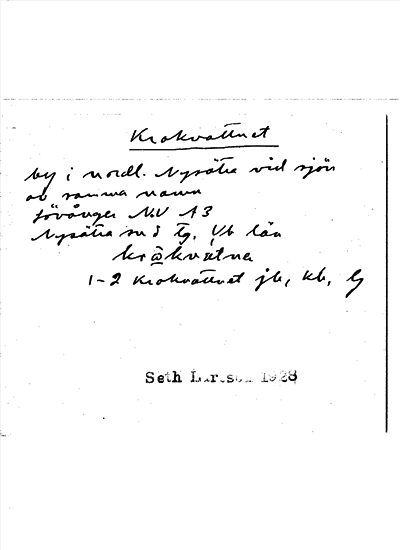 Krokvattnet
by i nordl. Nysätra vid sjön
av samma namn
Lövånger NV A3
Nysätra sn S tg. Vb län
krøkvatna
1-2 Krokvattnet jb, kb, lg
Seth Larsson 1928